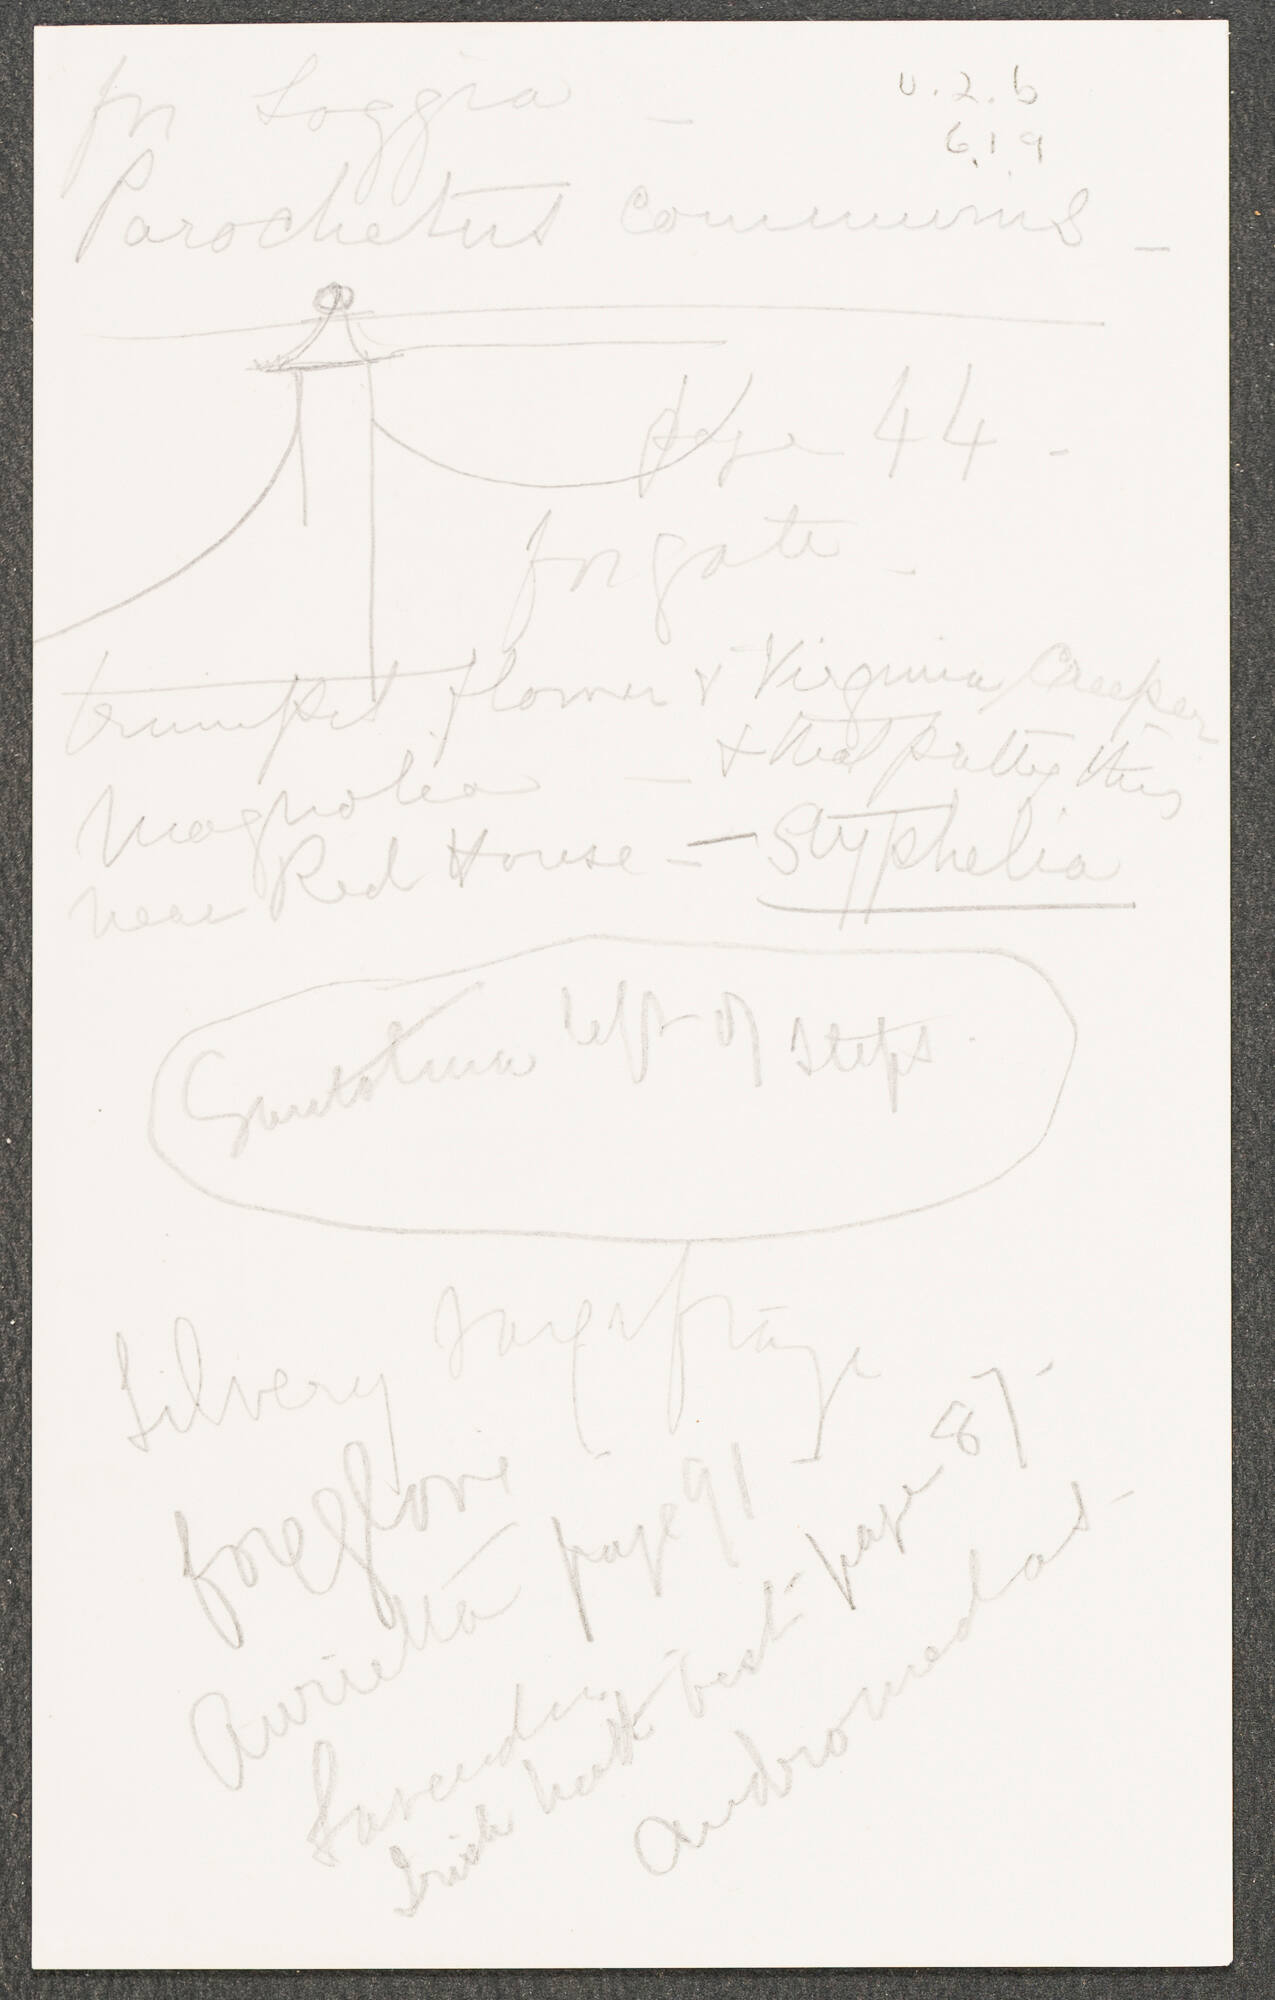 for Loggia —
U.2.b
6.1.9
Parochetus communis —
page 44 -
for gate -
trumpet flower & Virginia Creeper
magnolia — & that pretty thing
near Red House — Styphelia
Santolina left of steps.
Silvery saxifrage
foxglove -
page 91
Lavender
Irish heath best - page 87 -
andromedas -